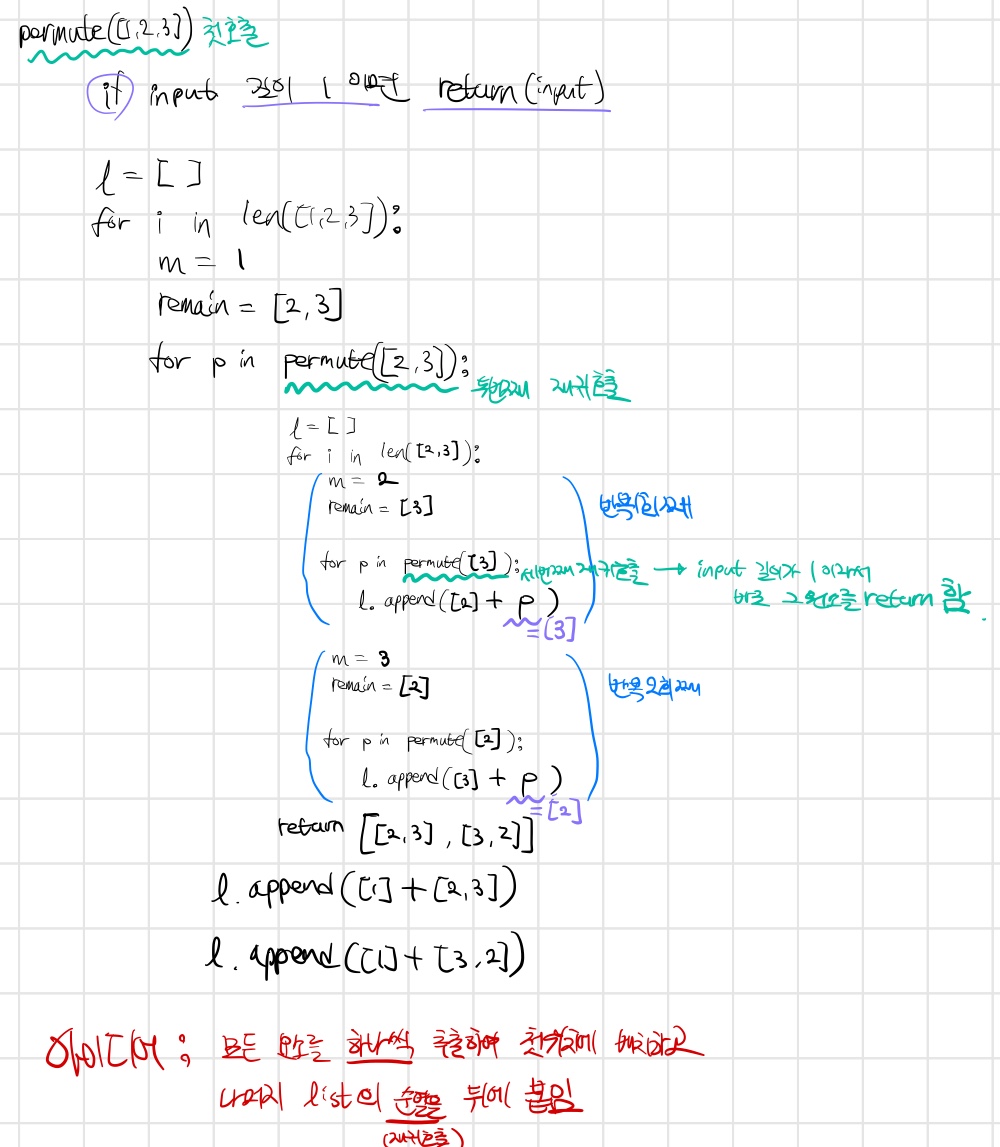 permute([1,2,3]) 첫호출
if input 길이 1 이면 return(input)
l = [ ]
for i in len([1,2,3]):
m = 1
remain = [2,3]
for p in permute([2,3]):
두번째 재귀호출
l = [ ]
for i in len([2,3]):
m = 2
remain = [3]
반복1회째
for p in permute([3]): 세번째 재귀호출 → input 길이가 1 이라서
바로 그 원소를 return 함.
l.append([2] + p)
= [3]
m = 3
remain = [2]
반복2회째
for p in permute([2]):
l.append([3] + p)
= [2]
return [[2,3], [3,2]]
l.append([1] + [2,3])
l.append([1] + [3,2])
아이디어 : 모든 요소를 하나씩 추출하여 첫위치에 배치하고
나머지 list의 순열을 뒤에 붙임
(재귀호출)